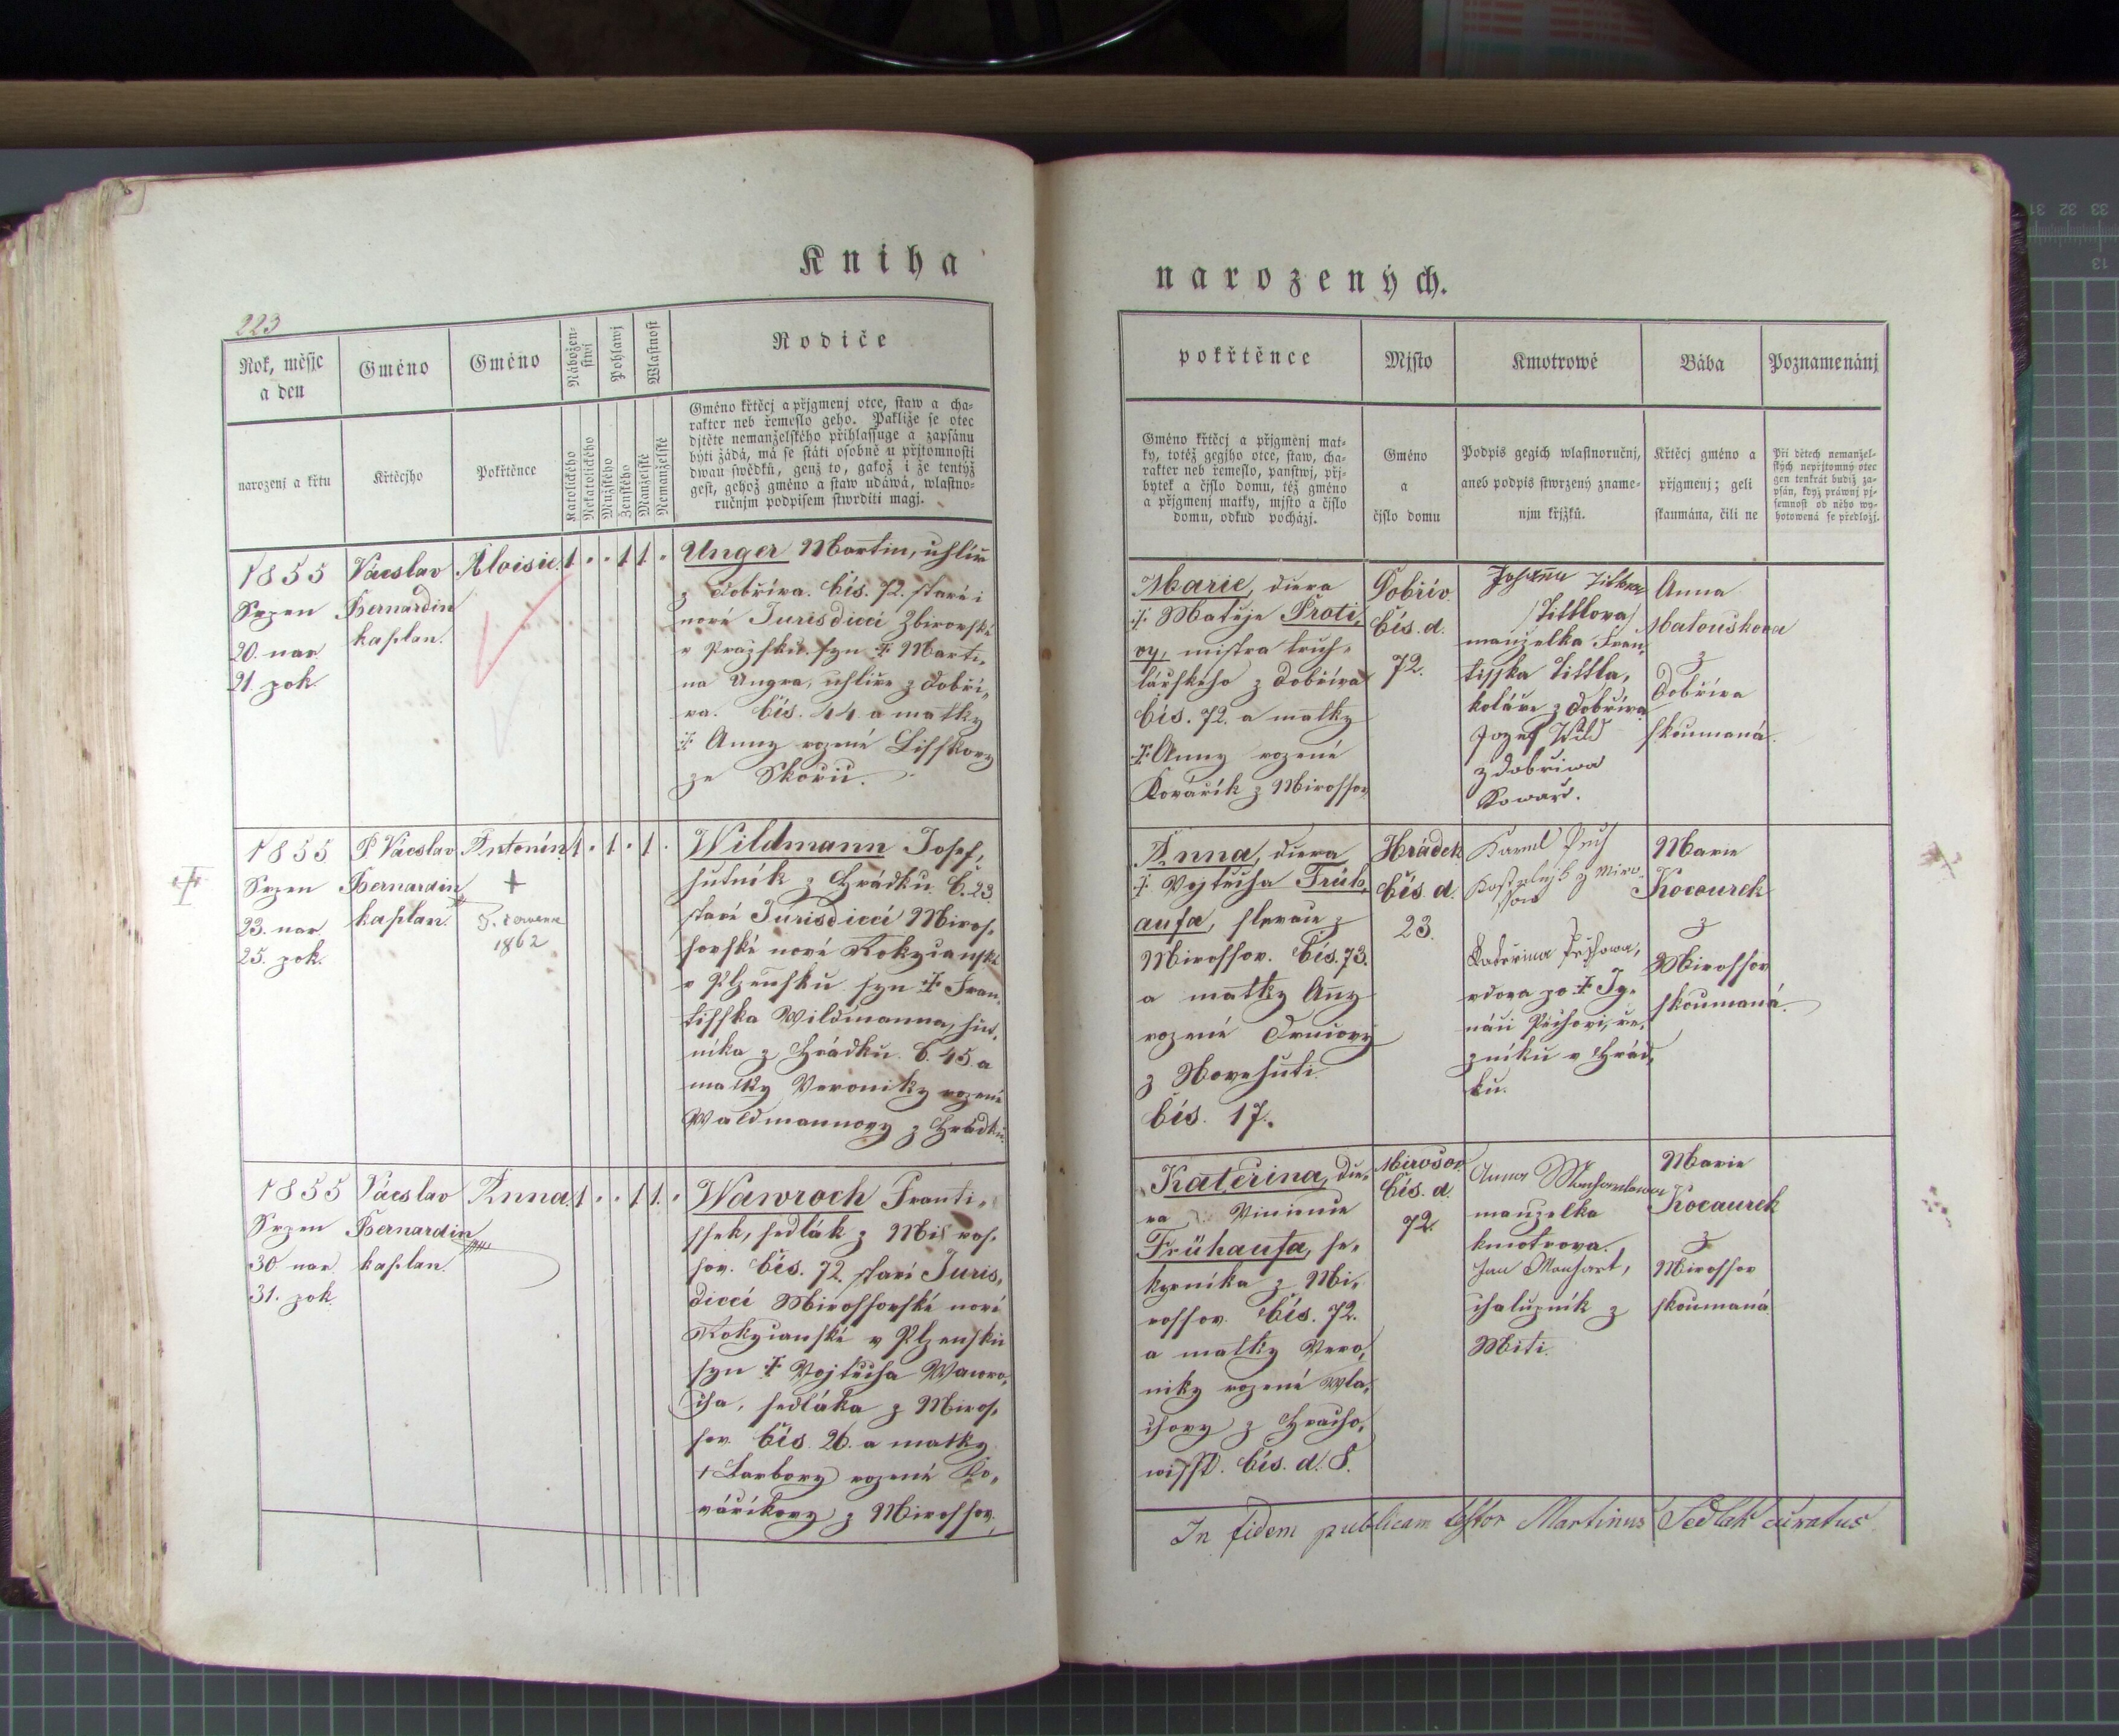 Kniha
narozených.
223
Rok, měsjc
a den
Gméno
Gméno
Nábožen-
stwj
Pohlawj
Wlastnost
Rodiče
narozenj a křtu
Křtěcjho
Pokřtěnce
Katolického
Nekatolického
Mužského
Ženského
Manželské
Nemanželské
Gméno křtěcj a přjgmenj otce, staw a cha-
rakter neb řemeslo geho. Pakliže se otec
djtěte nemanželského přihlassuge a zapsánu
býti žádá, má se státi osobně u přjtomnosti
dwau swědků, genž to, gakož i že tentýž
gest, gehož gméno a staw udáwá, wlastno-
ručnjm podpisem stwrditi magj.
1855
Srpen
20. nar
21. pok.
Vácslav
Bernardin
kaplan.
Aloisie
1 . . 1 1 .
Unger Martin, uhlíř
z Dobříva. čís. 72. staré i
nové Jurisdicci Zbirovské
v Pražsku. syn ‡ Marti„
na Ungra, uhlíře z Dobří„
va. čís. 44 a matky
‡ Anny rozené Lisskovy
ze Skořic.
1855
Srpen
23. nar
25. pok.
P. Vácslav
Bernardin
kaplan
Antonín
+
1862
1 . 1 . 1 .
Wildmann Josef,
hutník z Hrádku. č. 23.
staré Jurisdicci Miros„
sovské nové Rokycanské
v Plzeňsku syn ‡ Fran„
tisska Wildmanna, hut„
níka z Hrádku. č. 45 a
matky Veroniky rozené
Waldmannovy z Hrádku.
1855
Srpen
30 nar.
31. pok.
Vácslav
Bernardin
kaplan.
Anna
1 . . 1 1 .
Wawroch Franti„
ssek, sedlák z Miros„
sov. čís. 72. staré Juris„
dicci Mirossovské nové
Rokycanské v Plzeňsku
syn ‡ Vojtěcha Wawro„
cha, sedláka z Miros„
sov čís. 26. a matky
+ Barbory rozené Ko„
váříkovy z Mirossov.
pokřtěnce
Mjsto
Kmotrowé
Bába
Poznamenánj
Gméno křtěcj a přjgmenj mat-
ky, totéž gegjho otce, staw, cha-
rakter neb řemeslo, panstwj, přj-
bytek a čjslo domu, též gméno
a přjgmenj matky, mjsto a čjslo
domu, odkud pocházj.
Gméno
a
čjslo domu
Podpis gegich wlastnoručnj,
aneb podpis stwrzený zname-
njm křjžků.
Křtěcj gméno a
přjgmenj; geli
skaumána, čili ne
Při dětech nemanžel-
ských nepřjtomný otec
gen tenkrát budiž za-
psán, když práwnj pj-
semnost od něho wy-
hotowená se předložj.
Marie, dcera
‡ Matěje Proti„
vy, mistra truh„
lářského z Dobříva
čís. 72. a matky
‡ Anny rozené
Kovařík z Mirossov
Dobřív
čís. d.
72.
/Tittlova/
manželka Fran„
tisska Tittla,
koláře z Dobříva
Jozef Wild
z Dobřiwa
Kowař.
Anna
Matouskova
z
Dobříva
skoumaná.
Anna, dcera
‡ Vojtěcha Früh„
aufa, slevače z
Mirossov. čís. 73.
a matky Anny
rozené
z Novéhuti
čís. 17.
Hrádek
čís. d.
23.
Karel
z Miro-
ssow
vdova po ‡ Ig„
náci Pěchovi, ře„
zníku v Hrád„
ku.
Marie
Kocourek
z
Mirossov
skoumaná.
Kateřina, dce„
ra Vincence
Frühaufa, se„
kerníka z Mi„
rossov čís. 72.
a matky Vero„
niky rozené Wla„
chovy z Hracho„
wisst. čís. d. 8.
Mirošov.
čís. d.
72.
Anna
manželka
kmotrova.
Jan Monhart,
chalupník z
Miti.
Marie
Kocaurek
z
Mirossov
skoumaná.
In fidem publicam testor Martinus Sedlak curatus